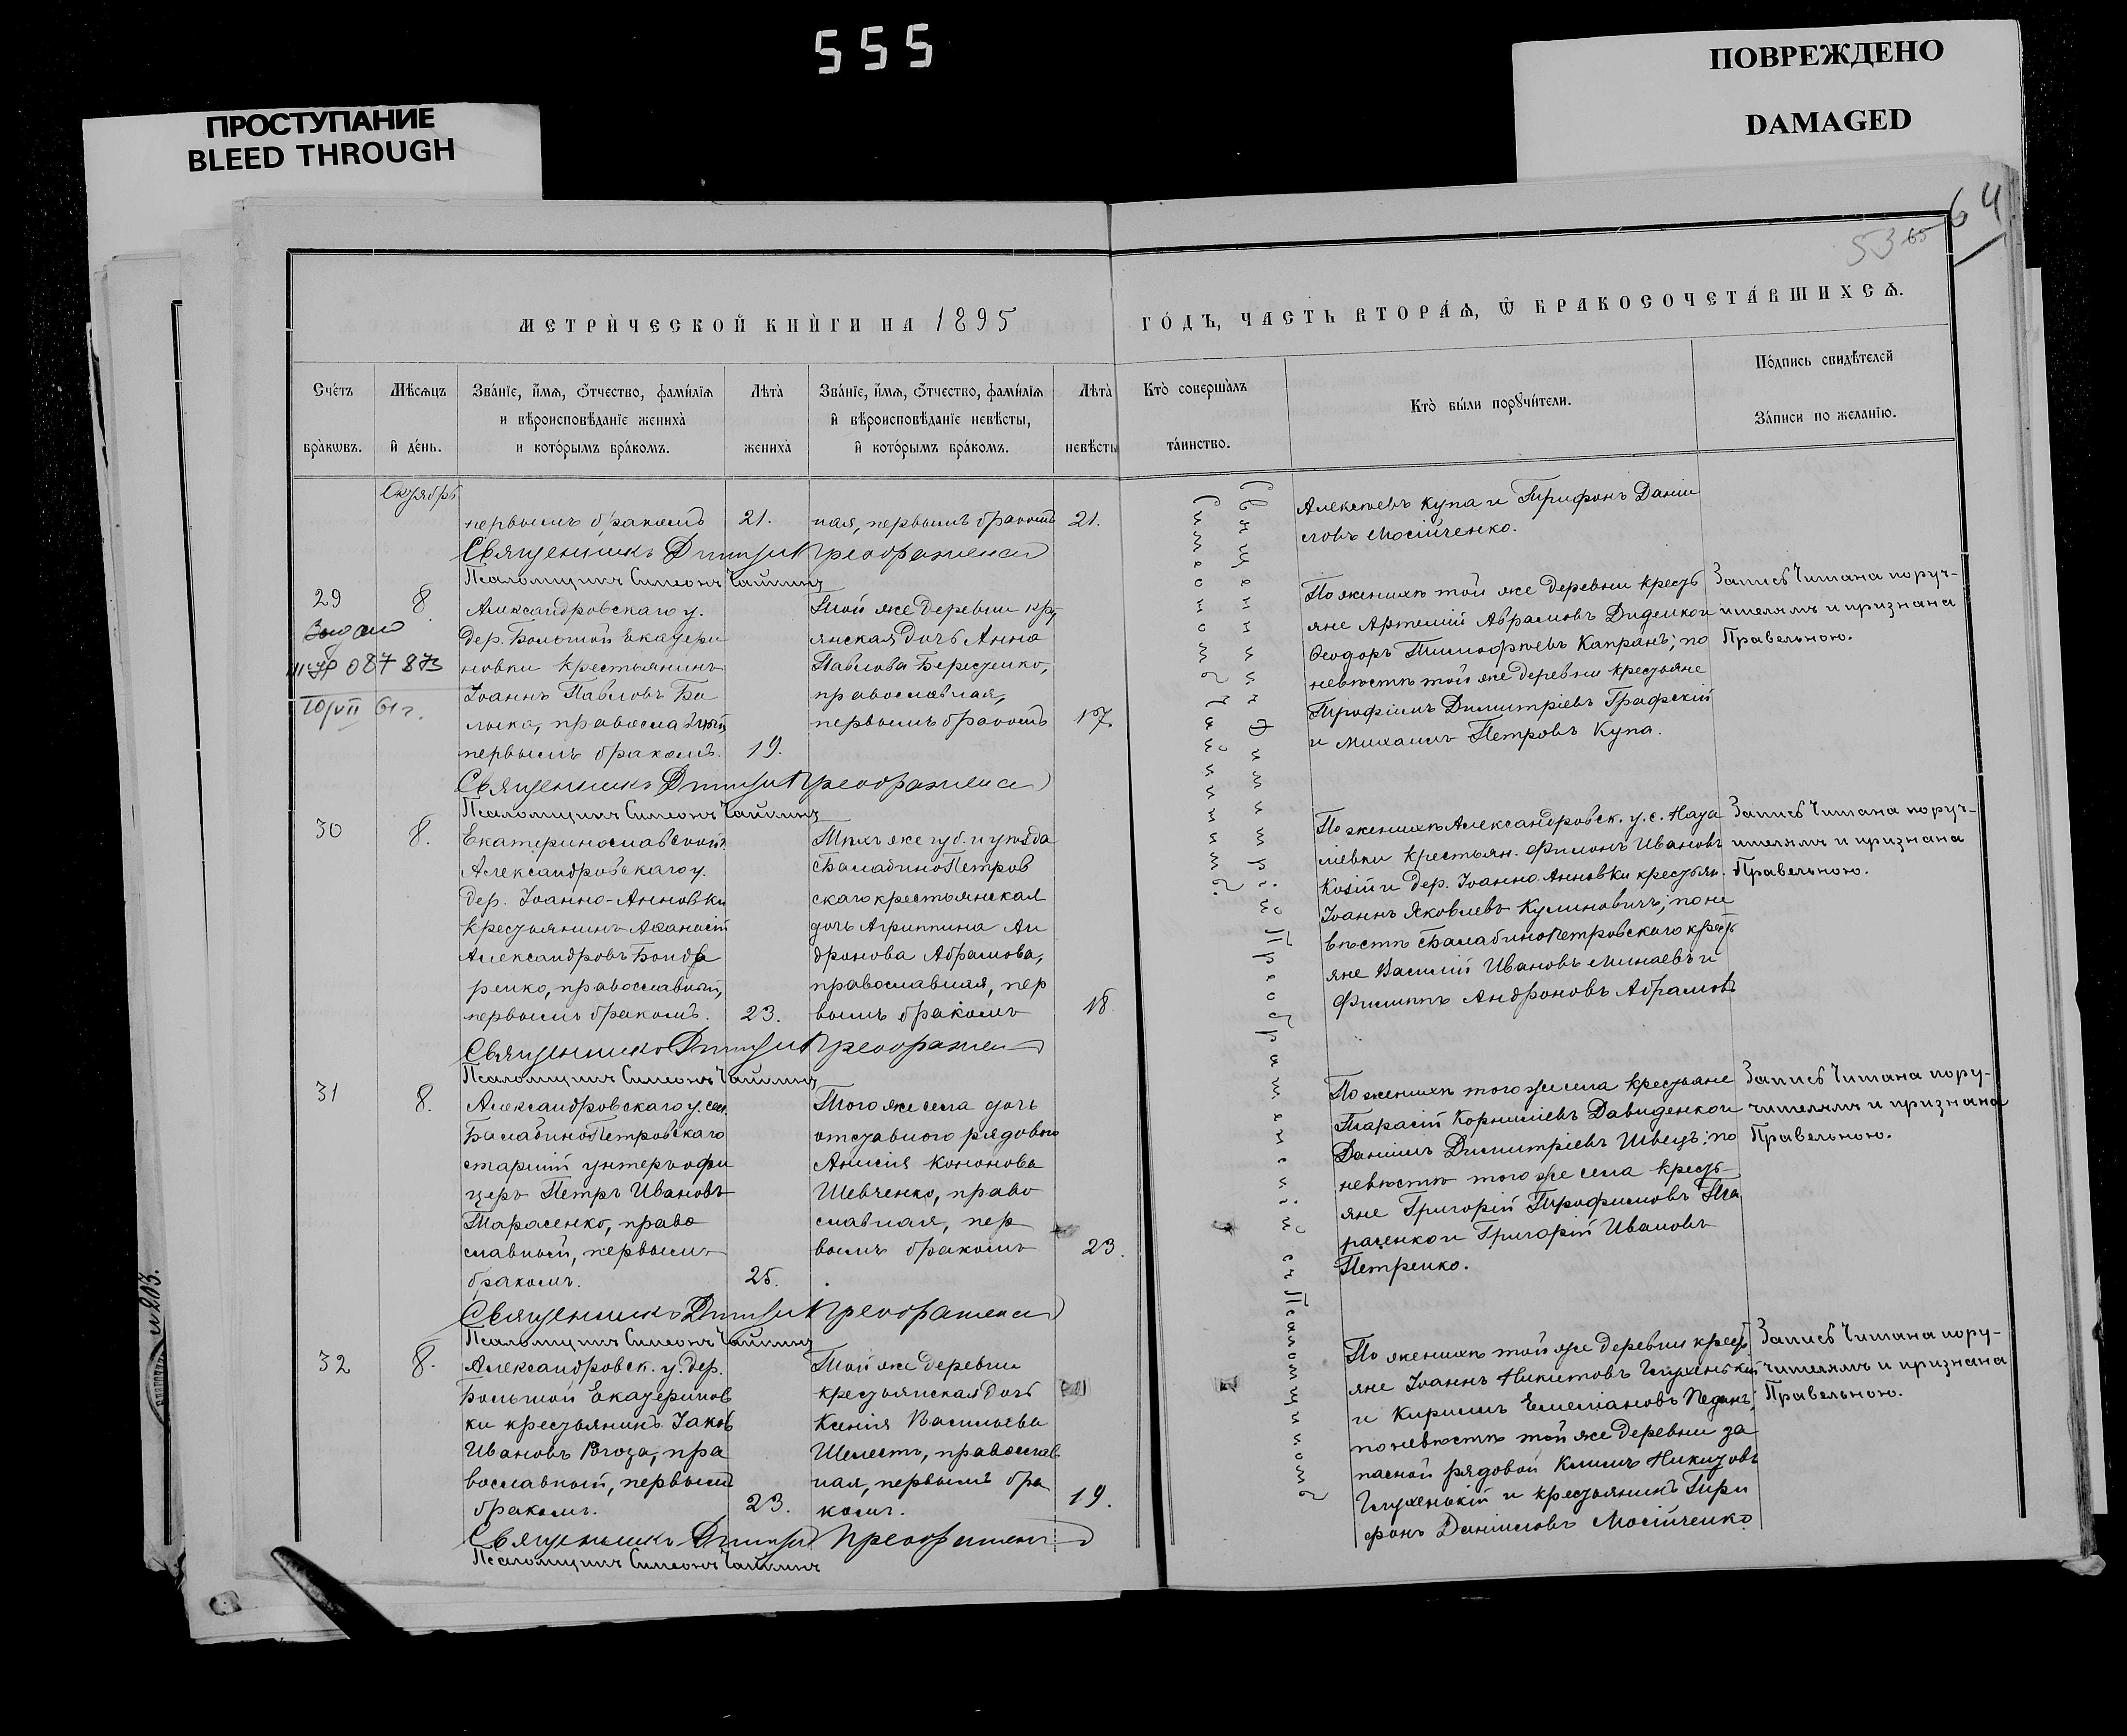 555
ПРОСТУПАНИЕ
BLEED THROUGH
ПОВРЕЖДЕНО
DAMAGED
64
53 65
МЕТРИ́ЧЕСКОЙ КНИ́ГИ НА 1895
ГО́ДЪ, ЧАСТЬ ВТОРА́Ѧ, Ѿ БРАКОСОЧЕТА́ВШИХСѦ.
Сче́тъ бра́кѡвъ.
Мѣ́сяцъ й де́нь.
Зва́нїе, и́мѧ, ѻ́тчество, фами́лїѧ
и вѣроисповѣ́данїе жениха̀
и кото́рымъ бра́комъ.
Лѣта̀ жениха̀
Зва́нїе, и́мѧ, ѻ́тчество, фами́лїѧ
й вѣроисповѣ́данїе невѣ́сты,
й кото́рымъ бра́комъ.
Лѣта̀ невѣ́сты
Кто̀ соверша́лъ та́инство.
Кто̀ бы́ли порꙋчи́тели.
По́дпись свидѣ́телей
За́писи по жела́нїю.
Октябрь
первымъ бракомъ
21.
ная, первымъ бракомъ
21.
Алексѣевъ Купа и Трифонъ Даніи
ловъ Мосійченко.
Священникъ Димитрій Преображенскій
Псаломщикъ Симеонъ Чайкинъ
29
8
Выдано
087873
10/VII 61 г.
Александровскаго у.
дер. Большой Екатери
новки крестьянинъ
Іоаннъ Павловъ Ба
лыка, православный,
первымъ бракомъ.
19.
Той же деревни кр​ть
янская дочь Анна
Павлова Берестенко,
православная,
первымъ бракомъ
17.
По женихѣ той же деревни кресть
яне Артемій Абрамовъ Диденко и
Ѳеодоръ Тимофѣевъ Капранъ; по
невѣстѣ той же деревни крестьяне
Трофимъ Димитріевъ Графскій
и Михаилъ Петровъ Купа.
Запись читана поруч-
ителямъ и признана
Правельною.
Священникъ Димитрій Преображенскій
Псаломщикъ Симеонъ Чайкинъ
30
8.
Екатеринославской г.
Александровскаго у.
дер. Іоанно-Анновки
крестьянинъ Аѳанасій
Александровъ Бонда
ренко, православный,
первымъ бракомъ.
23.
Тѣхъ же губ. и уѣзда
Балабино Петров
скаго крестьянская
дочь Агриппина Ан
дронова Абрамова,
православная, пер
вымъ бракомъ
18.
По женихѣ Александровск. у. с. Ната
ліевки крестьян. Филимонъ Ивановъ
Козій и дер. Іоанно-Анновки крестьян.
Іоаннъ Яковлевъ Кулиновичъ; по не
вѣстѣ Балабинопетровскаго кресть
яне Василій Ивановъ Минаевъ и
Филиппъ Андроновъ Абрамовъ
Запись читана поруч-
ителямъ и признана
Правельною.
Священникъ Димитрій Преображенскій
Псаломщикъ Симеонъ Чайкинъ
31
8.
Александровскаго у. сел.
Балабино Петровскаго
старшій унтеръ офи
церъ Петръ Ивановъ
Тарасенко, право
славный, первымъ
бракомъ.
25.
Того же села дочь
отставного рядового
Анисія Кононова
Шевченко, право
славная, пер
вымъ бракомъ
23.
По женихѣ того же села крестьяне
Тарасій Корниліевъ Давиденко и
Даніилъ Димитріевъ Швецъ; по
невѣстѣ того же села кресть-
яне Григорій Трофимовъ Та
расенко и Григорій Ивановъ
Петренко.
Запись читана пору-
чителямъ и признана
Правельною.
Священникъ Димитрій Преображенскій
Псаломщикъ Симеонъ Чайкинъ
32
8.
Александровск. у. дер.
Большой Екатеринов
ки крестьянинъ Іаковъ
Ивановъ Рогоза, пра
вославный, первымъ
бракомъ.
23.
Той же деревни
крестьянская дочь
Ксенія Васильева
Шелестъ, православ
ная, первымъ бра
комъ.
19.
По женихѣ той же деревни кресть
яне Іоаннъ Никитовъ Глухенькій
и Кириллъ Емеліановъ Педанъ;
по невѣстѣ той же деревни за
пасной рядовой Климъ Никитовъ
Глухенькій и крестьянинъ Три
фонъ Даніиловъ Мосійченко.
Запись читана пору-
чителямъ и признана
Правельною.
Священникъ Димитрій Преображенскій
Псаломщикъ Симеонъ Чайкинъ
Священникъ Димитрій Преображенскій съ Псаломщикомъ
Симеономъ Чайкинымъ.